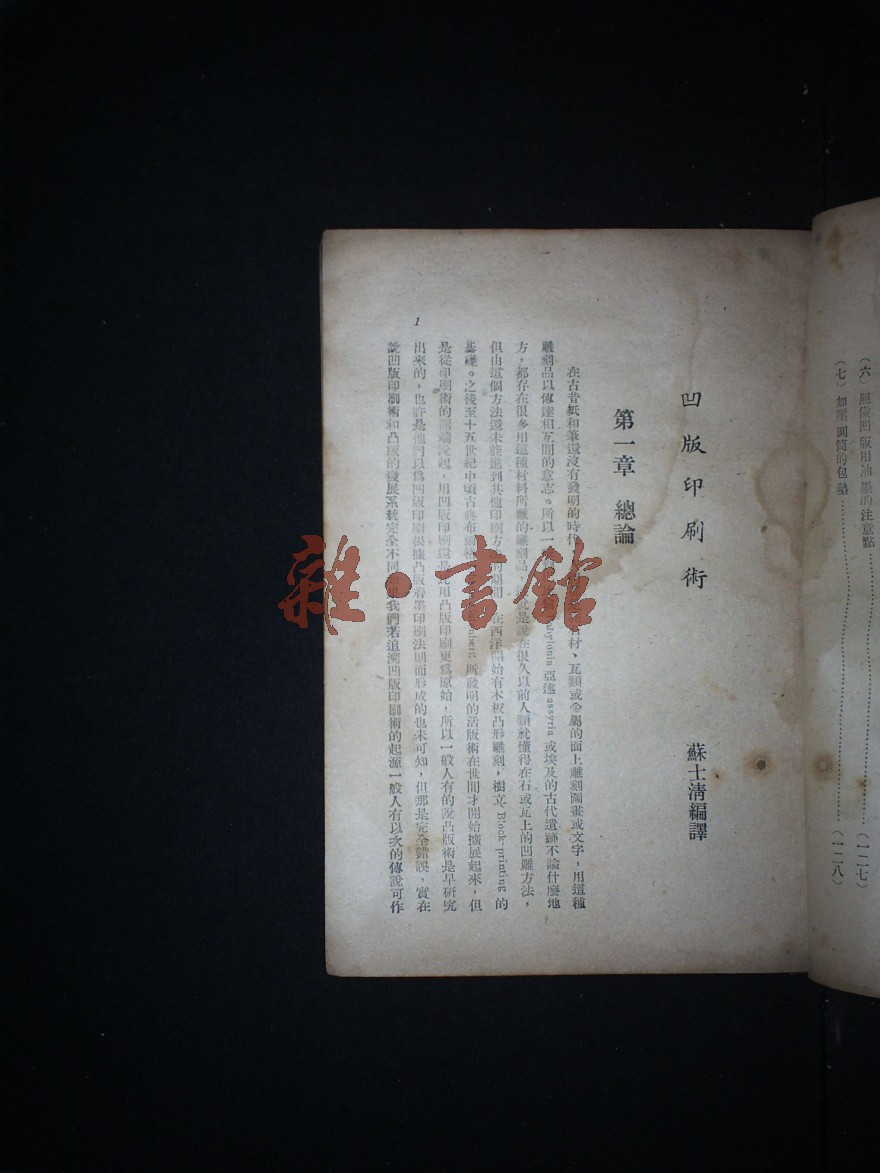 (六)照像凹版用油墨的注意點………(一二七)
(七)加壓圓筒的包墊………(一二八)
凹版印刷術
蘇士清編譯
第一章 總論
在古昔紙和筆還沒有發明的時代 石材、瓦類或金屬的面上雕刻圖畫或文字,用這種
雕刻品以傳達相互間的意志。所以一 Babylonia 亞述 assyria 或埃及的古代遺跡不論什麼地
方,都存在很多用這種材料所雕的雕刻品 就是說在很久以前人類就懂得在石或瓦上的凹雕方法,
但由這個方法還未能進到其他印刷方 的期間 在西洋開始有木板凸形雕刻,樹立 Block-printing 的
基礎。之後至十五世紀中頃古 所發明的活版術在世間才開始擴展起來,但
是從印刷術的 說起,用凹版印刷還是比用凸版印刷更爲原始,所以一般人有的說凸版術是早研究
出來的,也許是他們以爲凹版印刷根據凸版着墨印刷法 而形成的也未可知,但那是完全錯誤,實在
說凹版印刷術和凸版的發展系統完全不同 我們若追溯凹版印刷術的起源一般人有以次的傳說可作
1
雜·書館